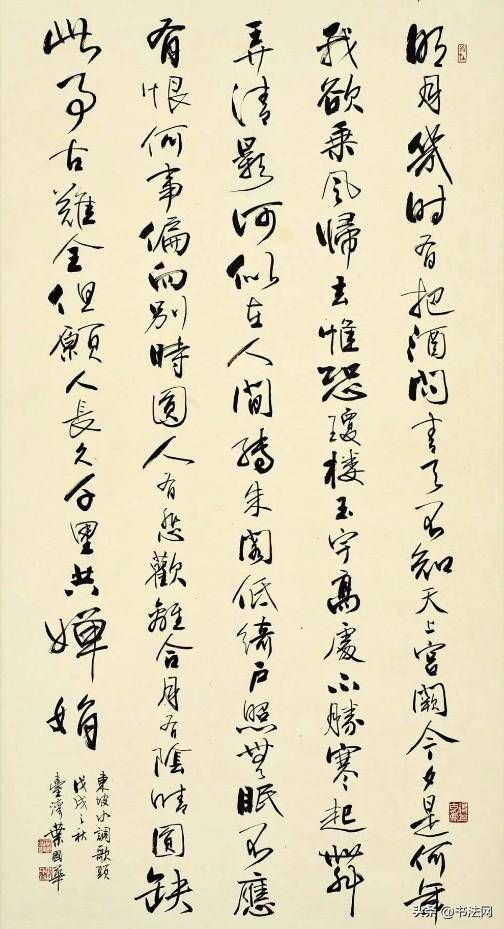 明月幾时有把酒問青天不知天上宮闕今夕是何年
我欲乘风歸去惟恐瓊楼玉宇高處不勝寒起舞
弄清影何似在人間轉朱閣低綺户照無眠不應
有恨何事偏向别時圓人有悲歡離合月有陰晴圓缺
此事古難全但願人長久千里共嬋娟
東坡水調歌頭
戊戌之秋
臺灣葉国華
头条 @书法网